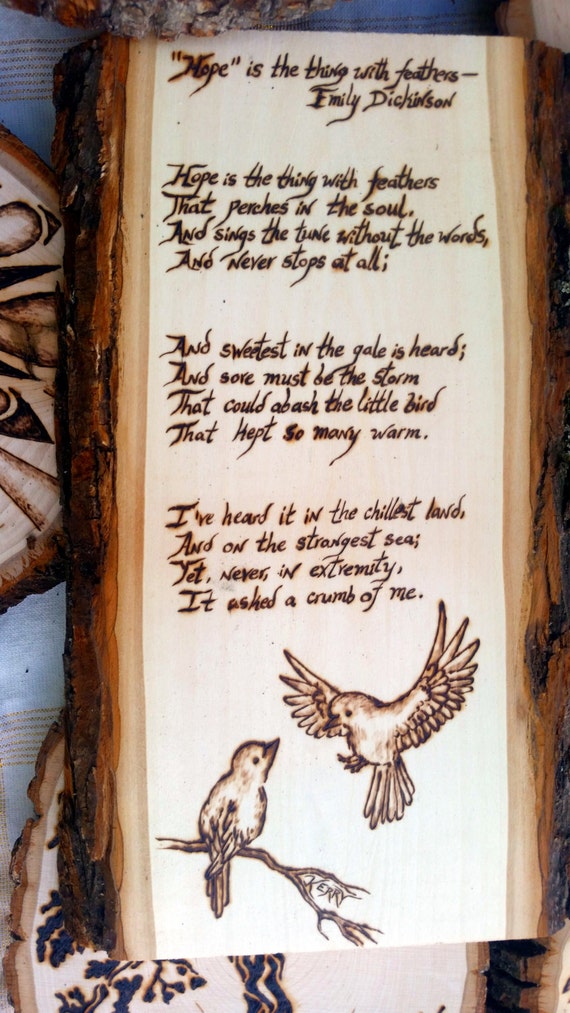 "Hope" is the thing with feathers—
Emily Dickinson
Hope is the thing with feathers
That perches in the soul.
And sings the tune without the words,
And never stops at all;
And sweetest in the gale is heard;
And sore must be the storm
That could abash the little bird
That kept so many warm.
I've heard it in the chillest land,
And on the strangest sea;
Yet, never, in extremity,
It asked a crumb of me.
KERRY